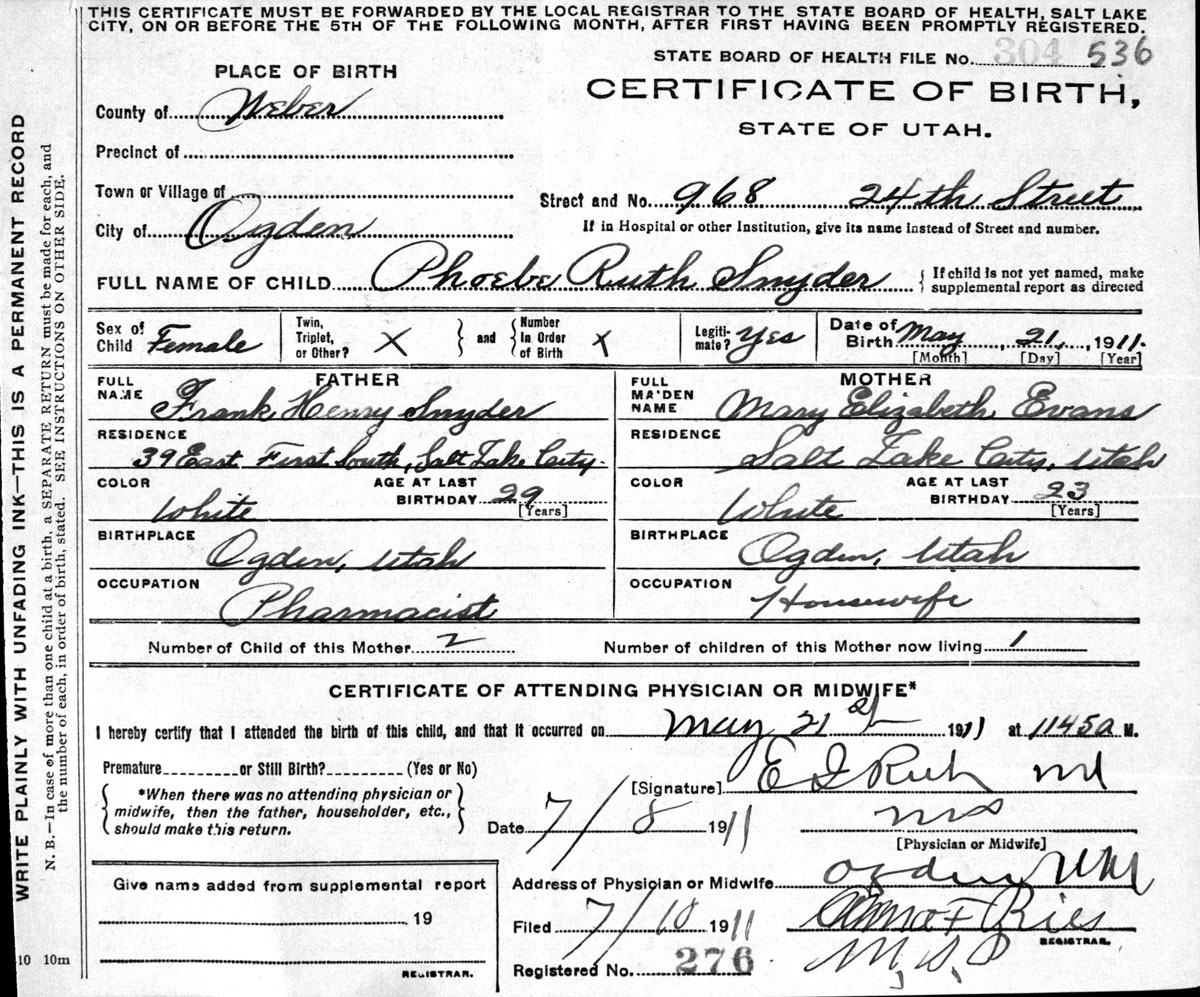 THIS CERTIFICATE MUST BE FORWARDED BY THE LOCAL REGISTRAR TO THE STATE BOARD OF HEALTH, SALT LAKE
CITY, ON OR BEFORE THE 5TH OF THE FOLLOWING MONTH, AFTER FIRST HAVING BEEN PROMPTLY REGISTERED.
STATE BOARD OF HEALTH FILE NO. 304 536
PLACE OF BIRTH
CERTIFICATE OF BIRTH,
County of Weber
STATE OF UTAH.
Precinct of
Town or Village of
Street and No. 968 24th Street
City of Ogden
If in Hospital or other Institution, give its name instead of Street and number.
FULL NAME OF CHILD Phoebe Ruth Snyder { If child is not yet named, make
supplemental report as directed
Sex of Child Female Twin, Triplet, or Other? X } and { Number In Order of Birth X Legiti-mate? Yes Date of Birth May, 21, 1911.
[Month] [Day] [Year]
FATHER MOTHER
FULL NAME Frank Henry Snyder FULL MAIDEN NAME Mary Elizabeth Evans
RESIDENCE RESIDENCE
39 East First South, Salt Lake City. Salt Lake City, Utah
COLOR White AGE AT LAST BIRTHDAY 29 [Years] COLOR White AGE AT LAST BIRTHDAY 23 [Years]
BIRTHPLACE Ogden, Utah BIRTHPLACE Ogden, Utah
OCCUPATION Pharmacist OCCUPATION Housewife
Number of Child of this Mother 2 Number of children of this Mother now living 1
CERTIFICATE OF ATTENDING PHYSICIAN OR MIDWIFE*
I hereby certify that I attended the birth of this child, and that it occurred on May 21 1911 at 1145a M.
Premature or Still Birth? (Yes or No)
[Signature] E I Rich MD
*When there was no attending physician or
midwife, then the father, householder, etc.,
should make this return.
Date 7/8 1911
[Physician or Midwife]
Give name added from supplemental report
Address of Physician or Midwife Ogden Utah
19
Filed 7/10 1911
REGISTRAR.
Registered No. 276
REGISTRAR.
10 10m
WRITE PLAINLY WITH UNFADING INK—THIS IS A PERMANENT RECORD
N. B.—In case of more than one child at a birth, a SEPARATE RETURN must be made for each, and
the number of each, in order of birth, stated. SEE INSTRUCTIONS ON OTHER SIDE.